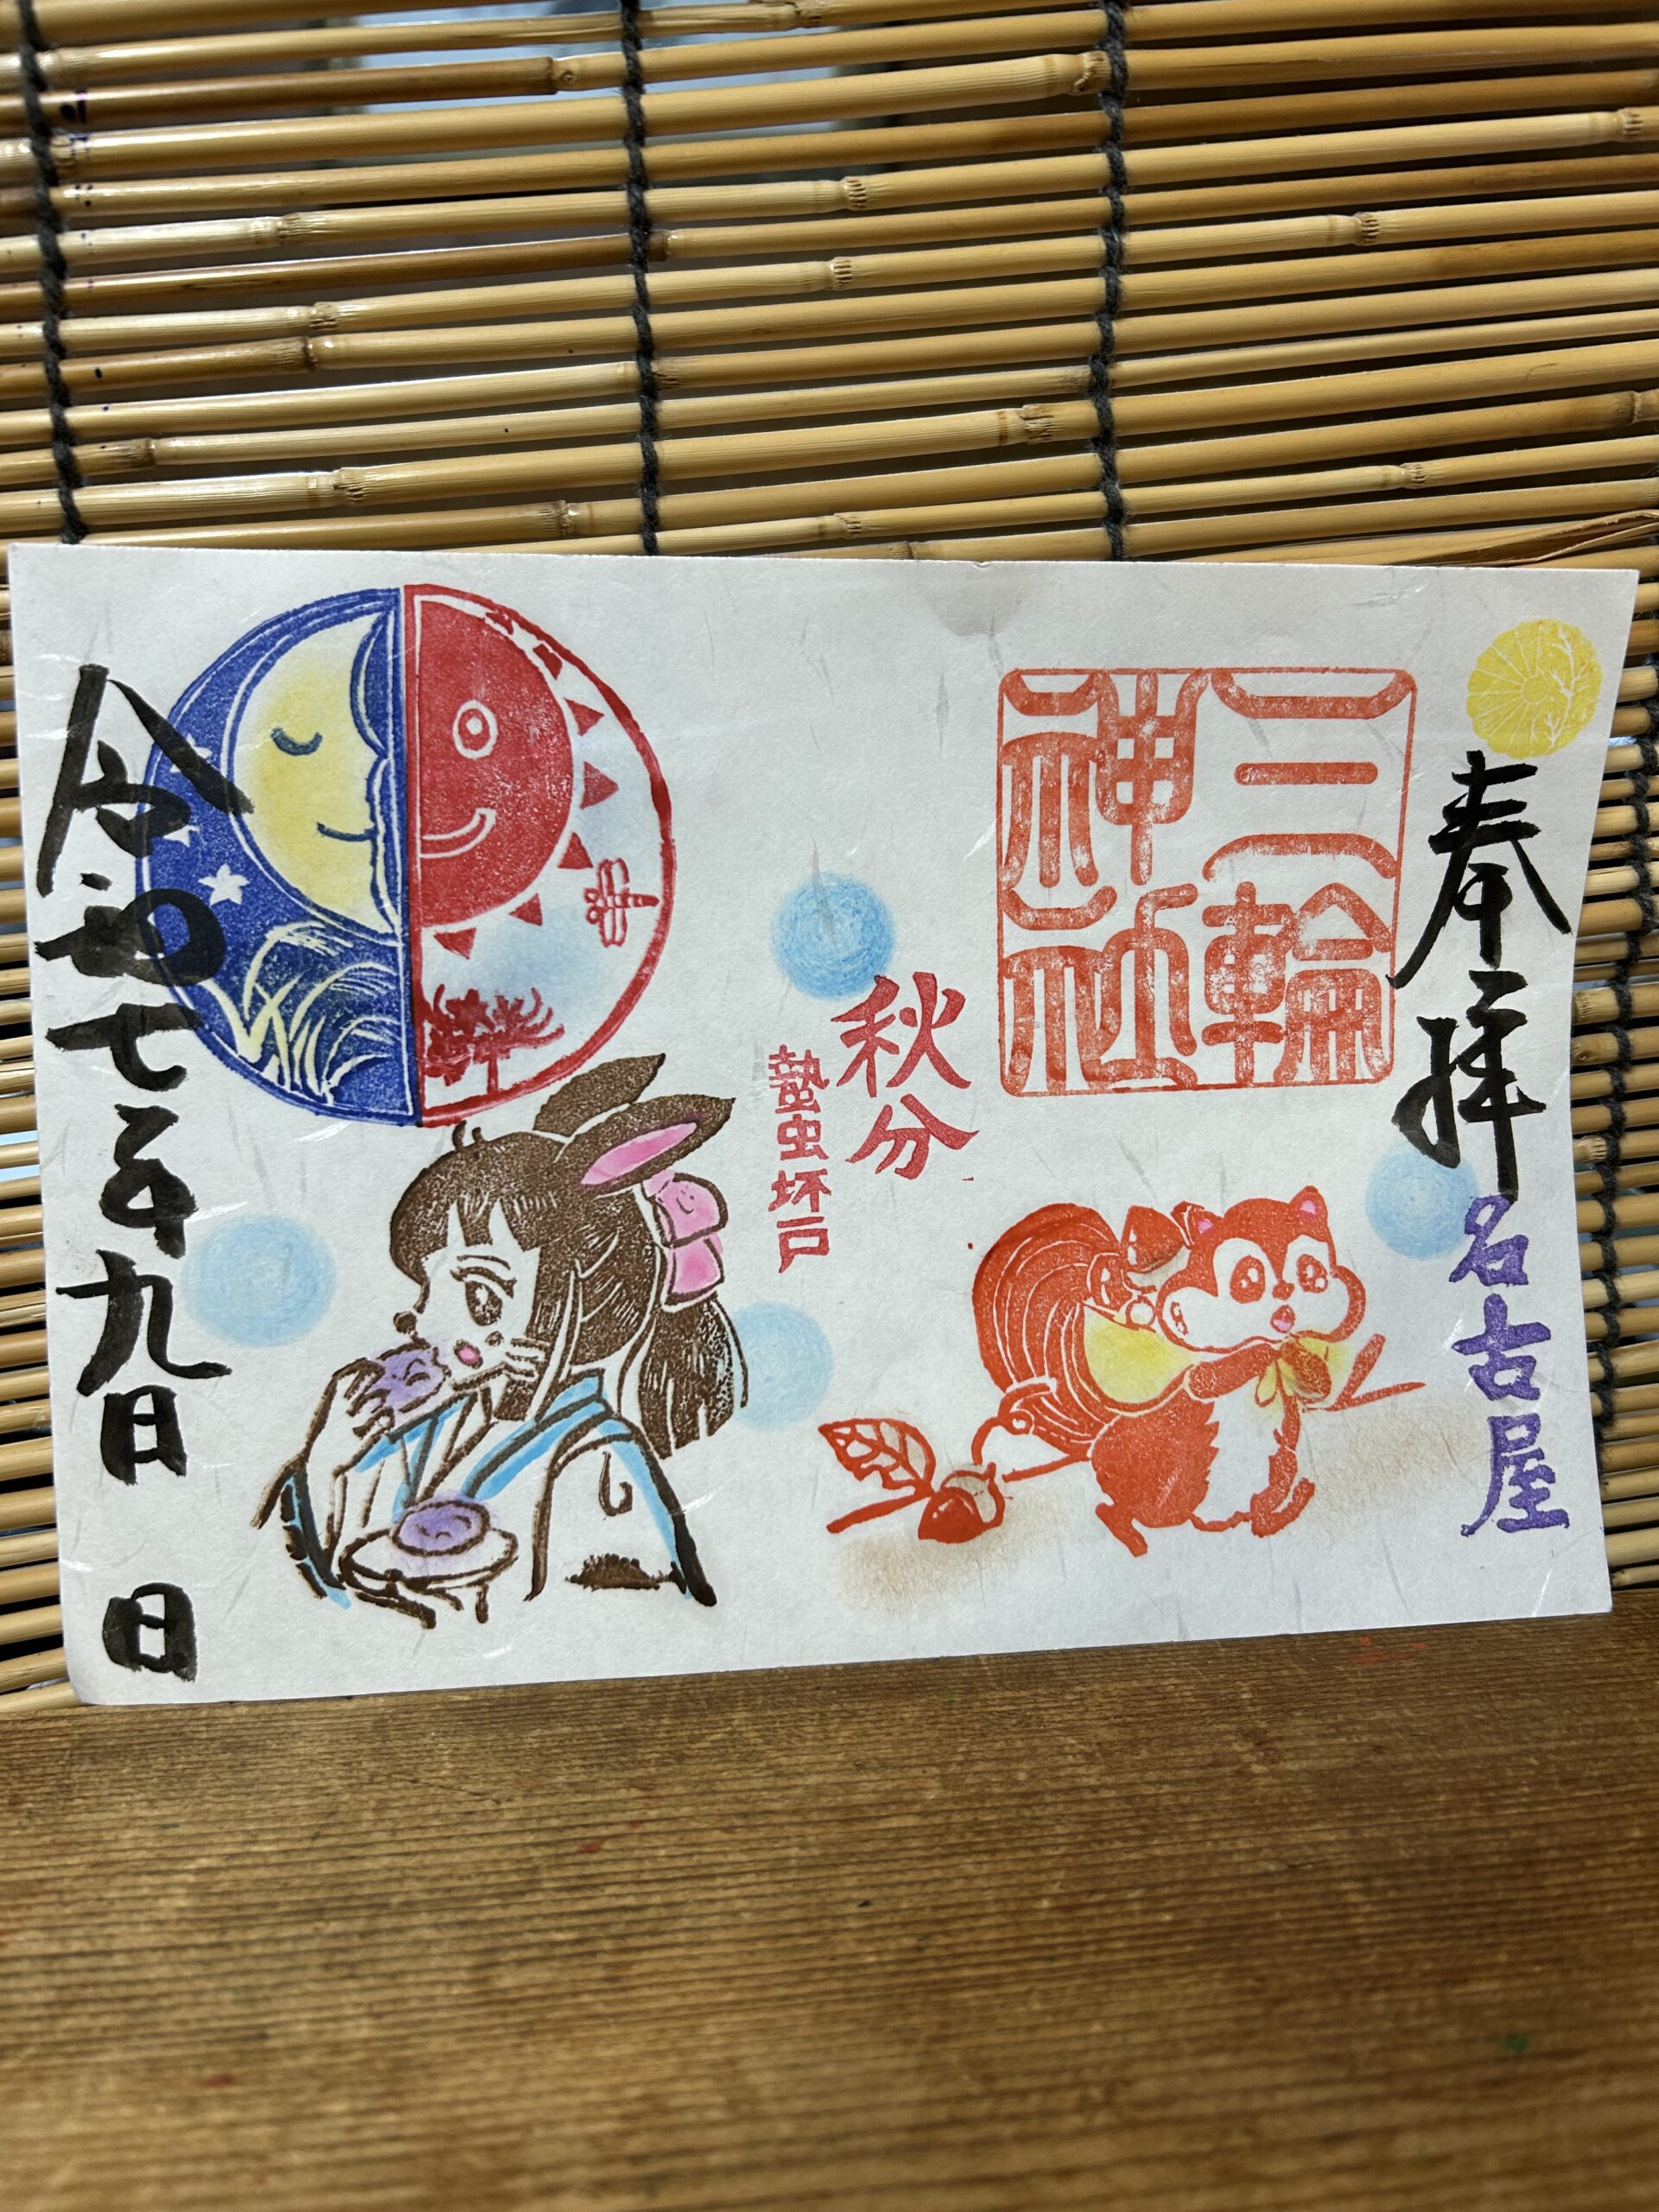 奉拝
名古屋
三輪
神社
秋分
蟄虫坏戸
令和七年九月 日